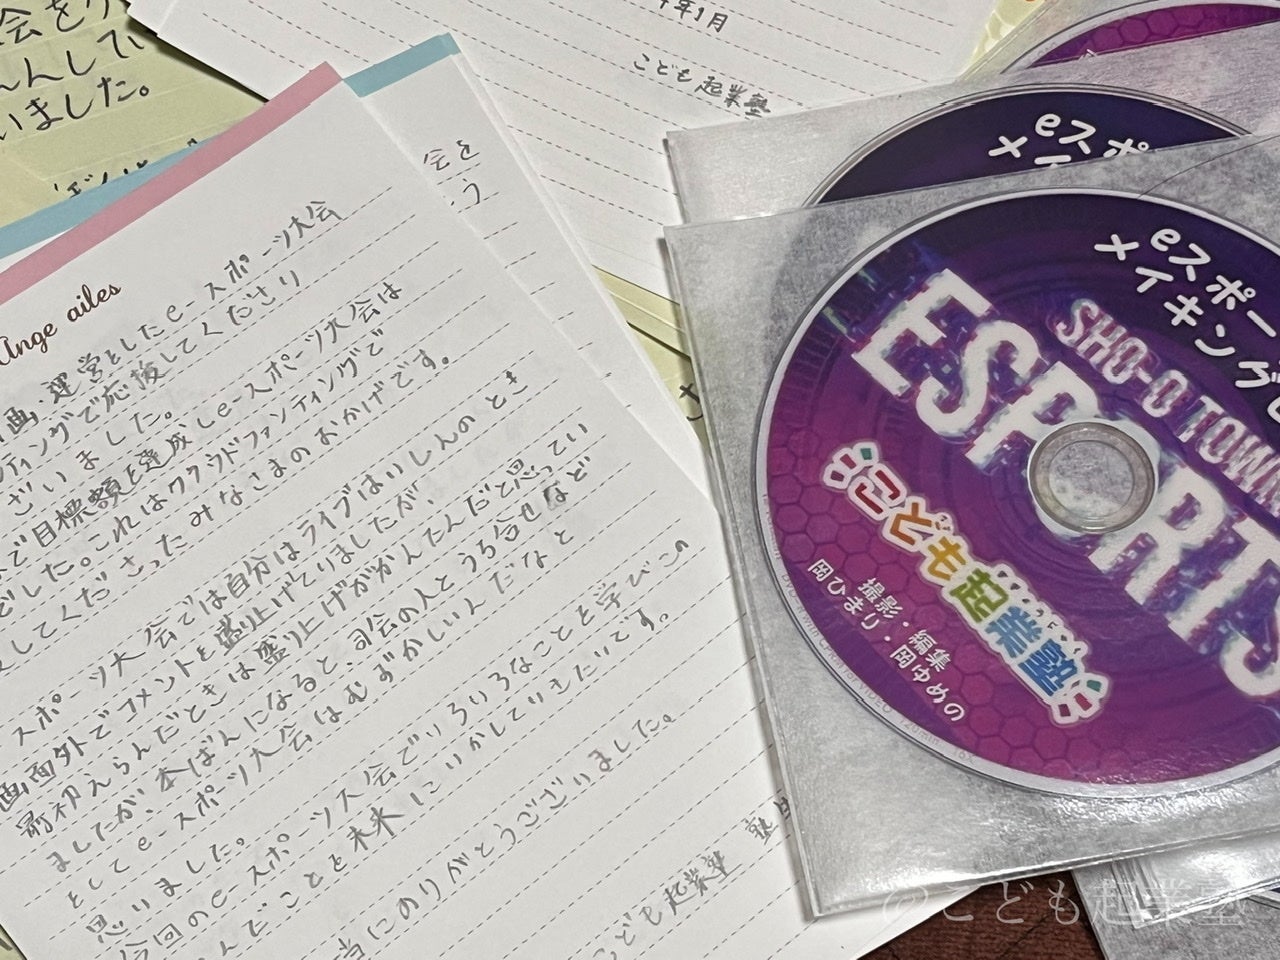 会を
んしてい
いました。
年1月
こども起業塾
会を
Ange ailes
画・運営としたe-スポーツ大会
ティングで応援してくださり
ございました。
で目標額を達成しe-スポーツ大会は
でした。これはクラウドファンティングで
してくださったみなさまのおかげです。
スポーツ大会では自分はライブはいしんのとき
画面外でコメントを盛り上げてりましたが、
前初えらんだときは盛り上げがかんたんだと思ってい
ましたが、本ばんになると、司会の人とうち合せなど
をしてe-スポーツ大会はむずかしいんだなと
思いました。
今回のe-スポーツ大会でいろいろなことを学びこの
んでことを未来にいかしていきたいです。
当にありがとうございました。
こども起業塾 塾
eスポ
メイ
eスポー
メイキング
SHO-O TOWN
ESPORTS
こども起業塾
撮影・編集
岡ひまり・岡ゆめの
@こども起業塾